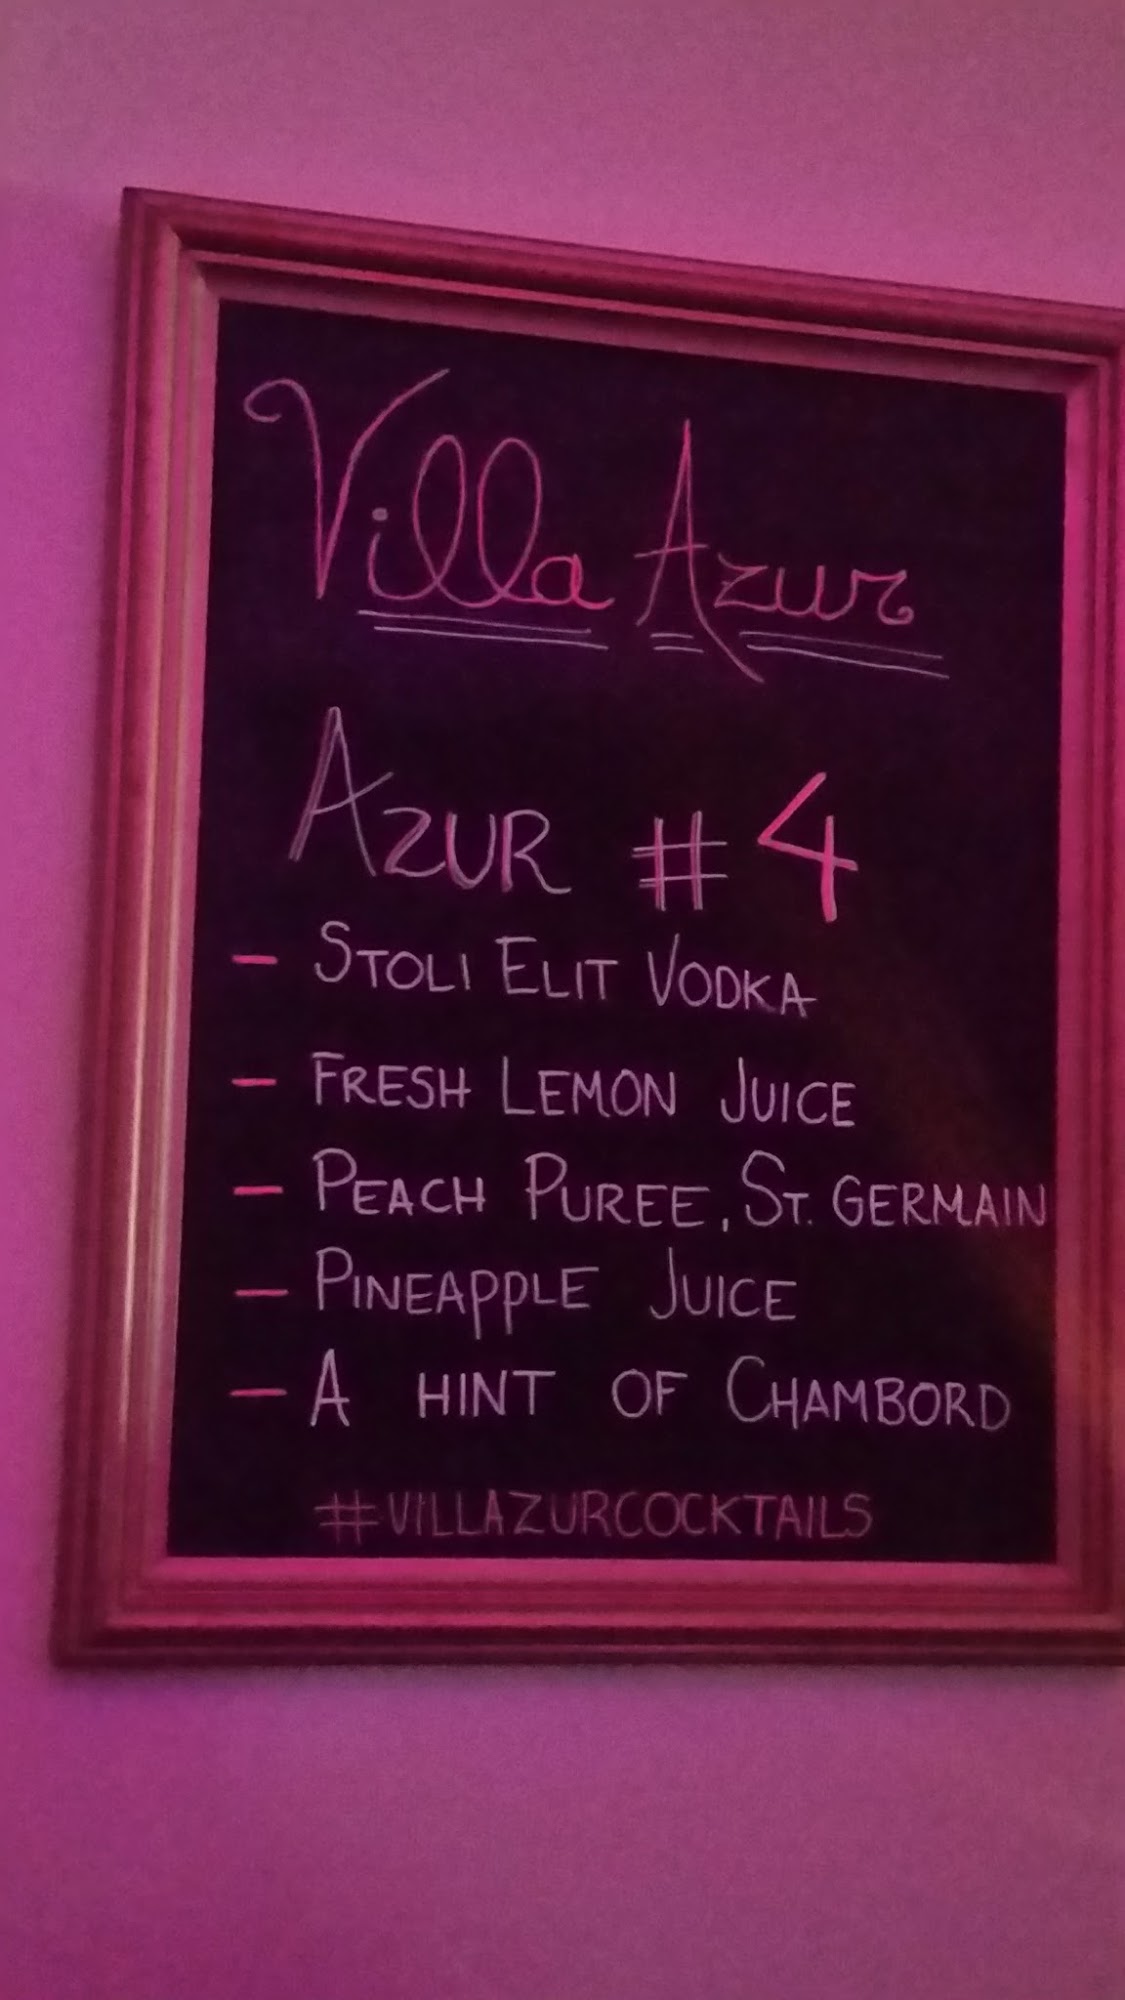 Villa Azur
AZUR #4
- STOLI ELIT VODKA
- FRESH LEMON JUICE
- PEACH PUREE, ST. GERMAIN
- PINEAPPLE JUICE
- A HINT OF CHAMBORD
#VILLAZURCOCKTAILS